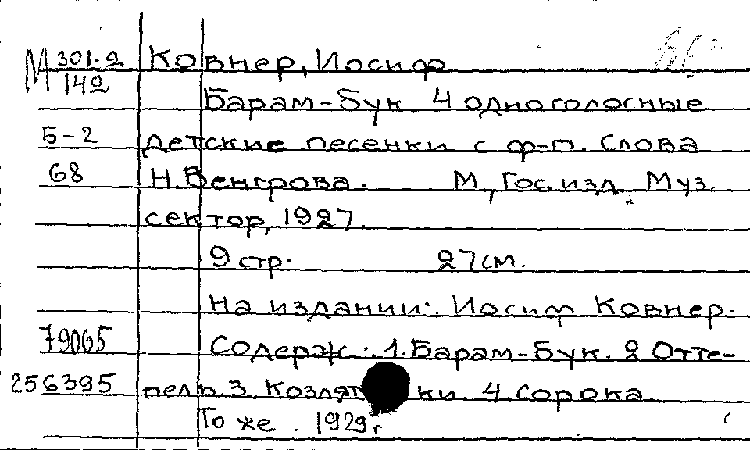 М 301-2 Ковнер, Иосиф
142
Барам-Бук 4 одноголосные
Б-2 детские песенки с ф-п. Слова
68 Н. Венгрова. М., Гос. изд. Муз.
сектор, 1927.
9 стр. 27 см.
На издании: Иосиф Ковнер.
79065 Содерж.: 1. Барам-Бук. 2 Отте-
256395 пель 3. Козлят ки 4 Сорока.
То же. 1929 г.